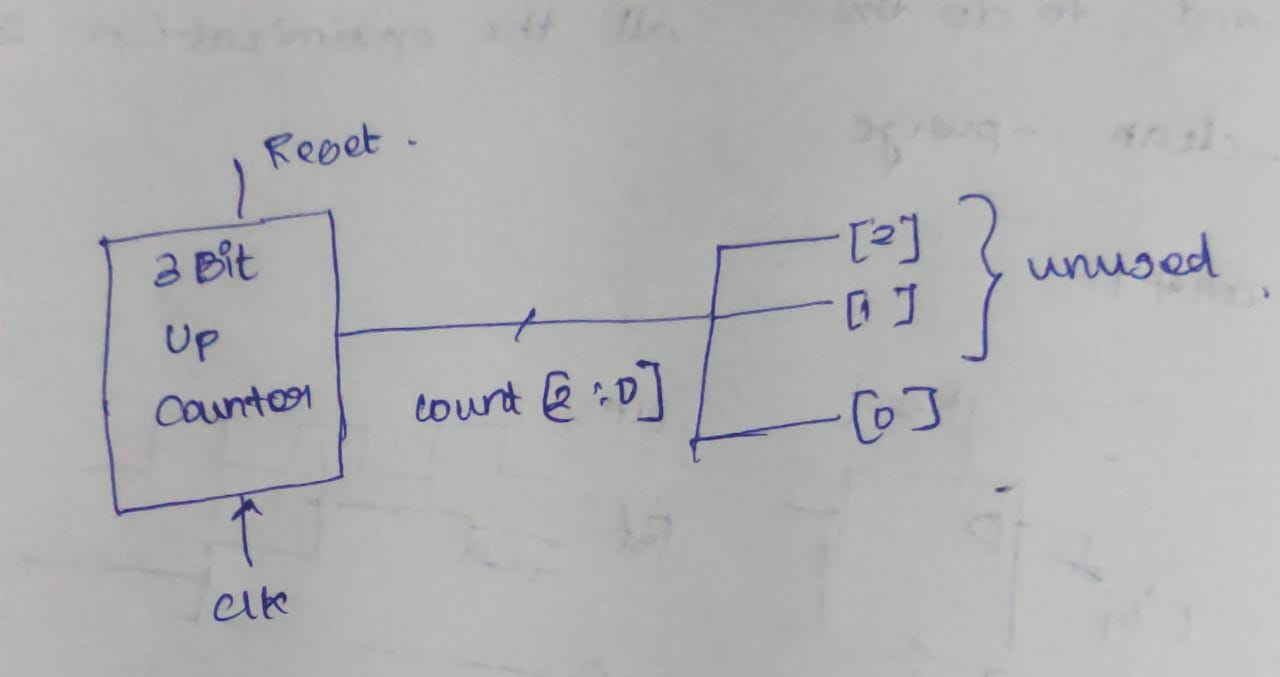 Reset.
3 Bit
Up
Counter
count [2:0]
[2]
[1]
[0]
unused.
clk